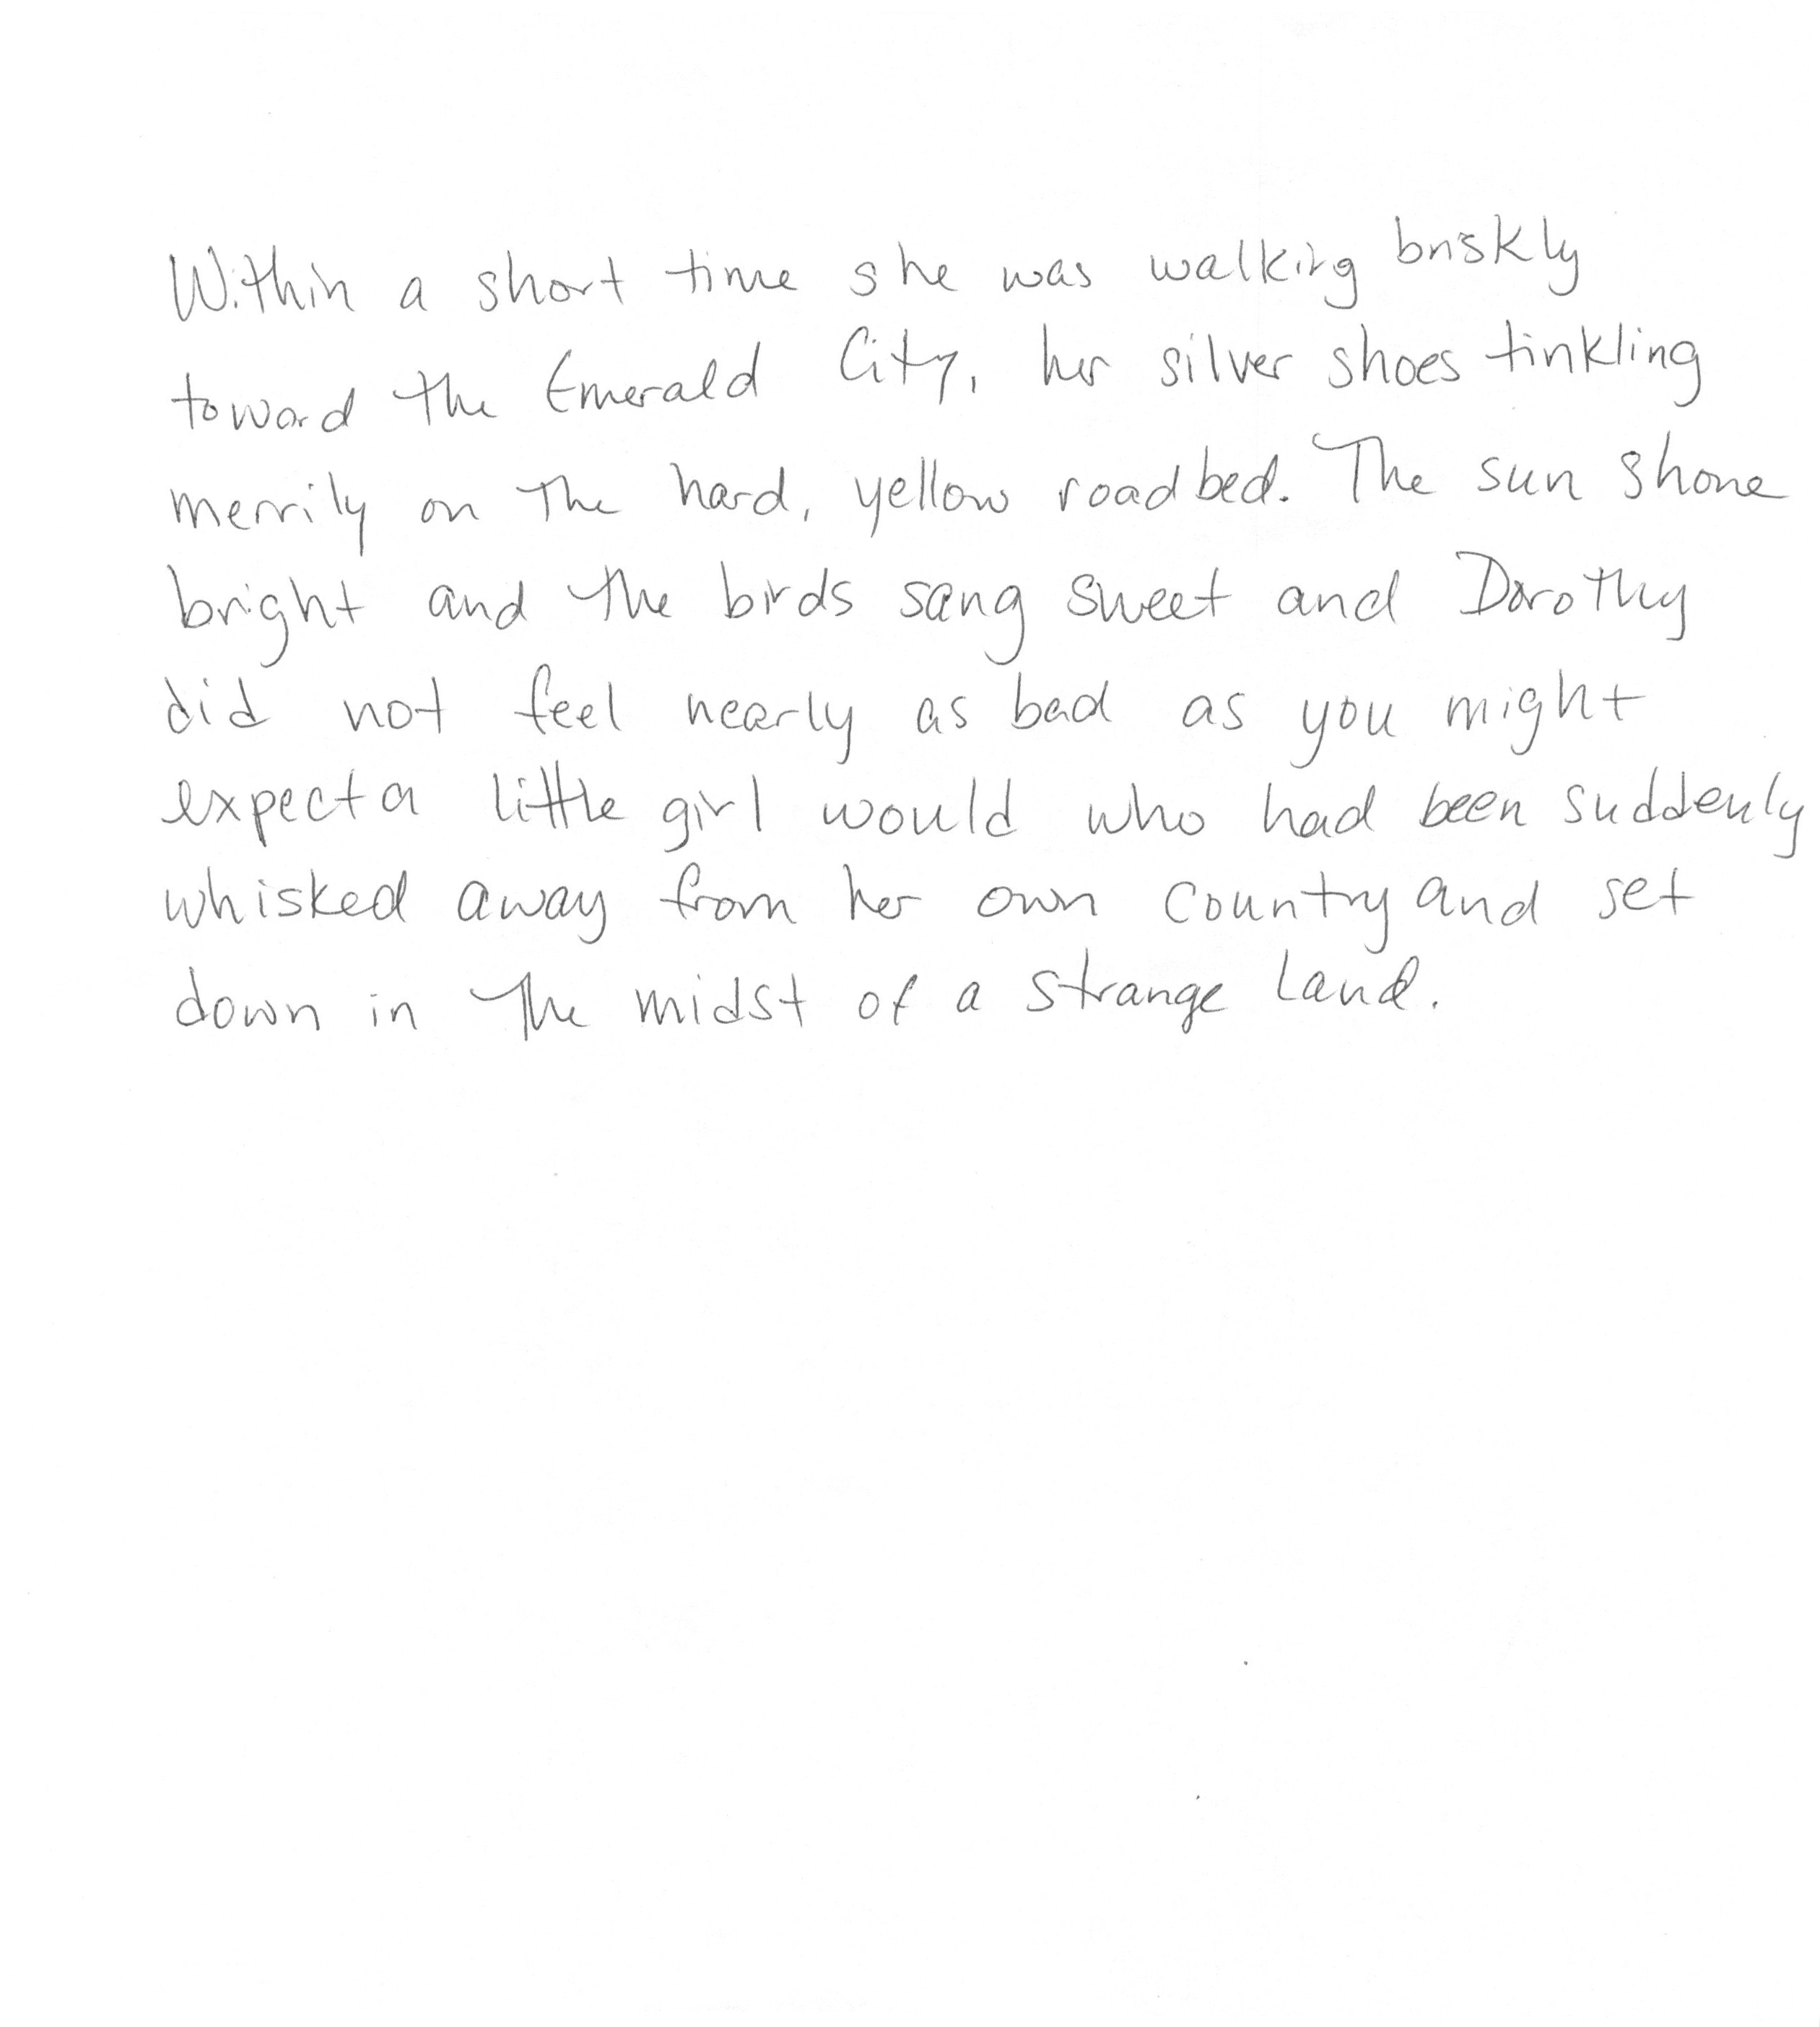 Within a short time she was walking briskly
toward the Emerald City, her silver shoes tinkling
merrily on the hard, yellow roadbed. The sun shone
bright and the birds sang sweet and Dorothy
did not feel nearly as bad as you might
expect a little girl would who had been suddenly
whisked away from her own country and set
down in the midst of a strange land.